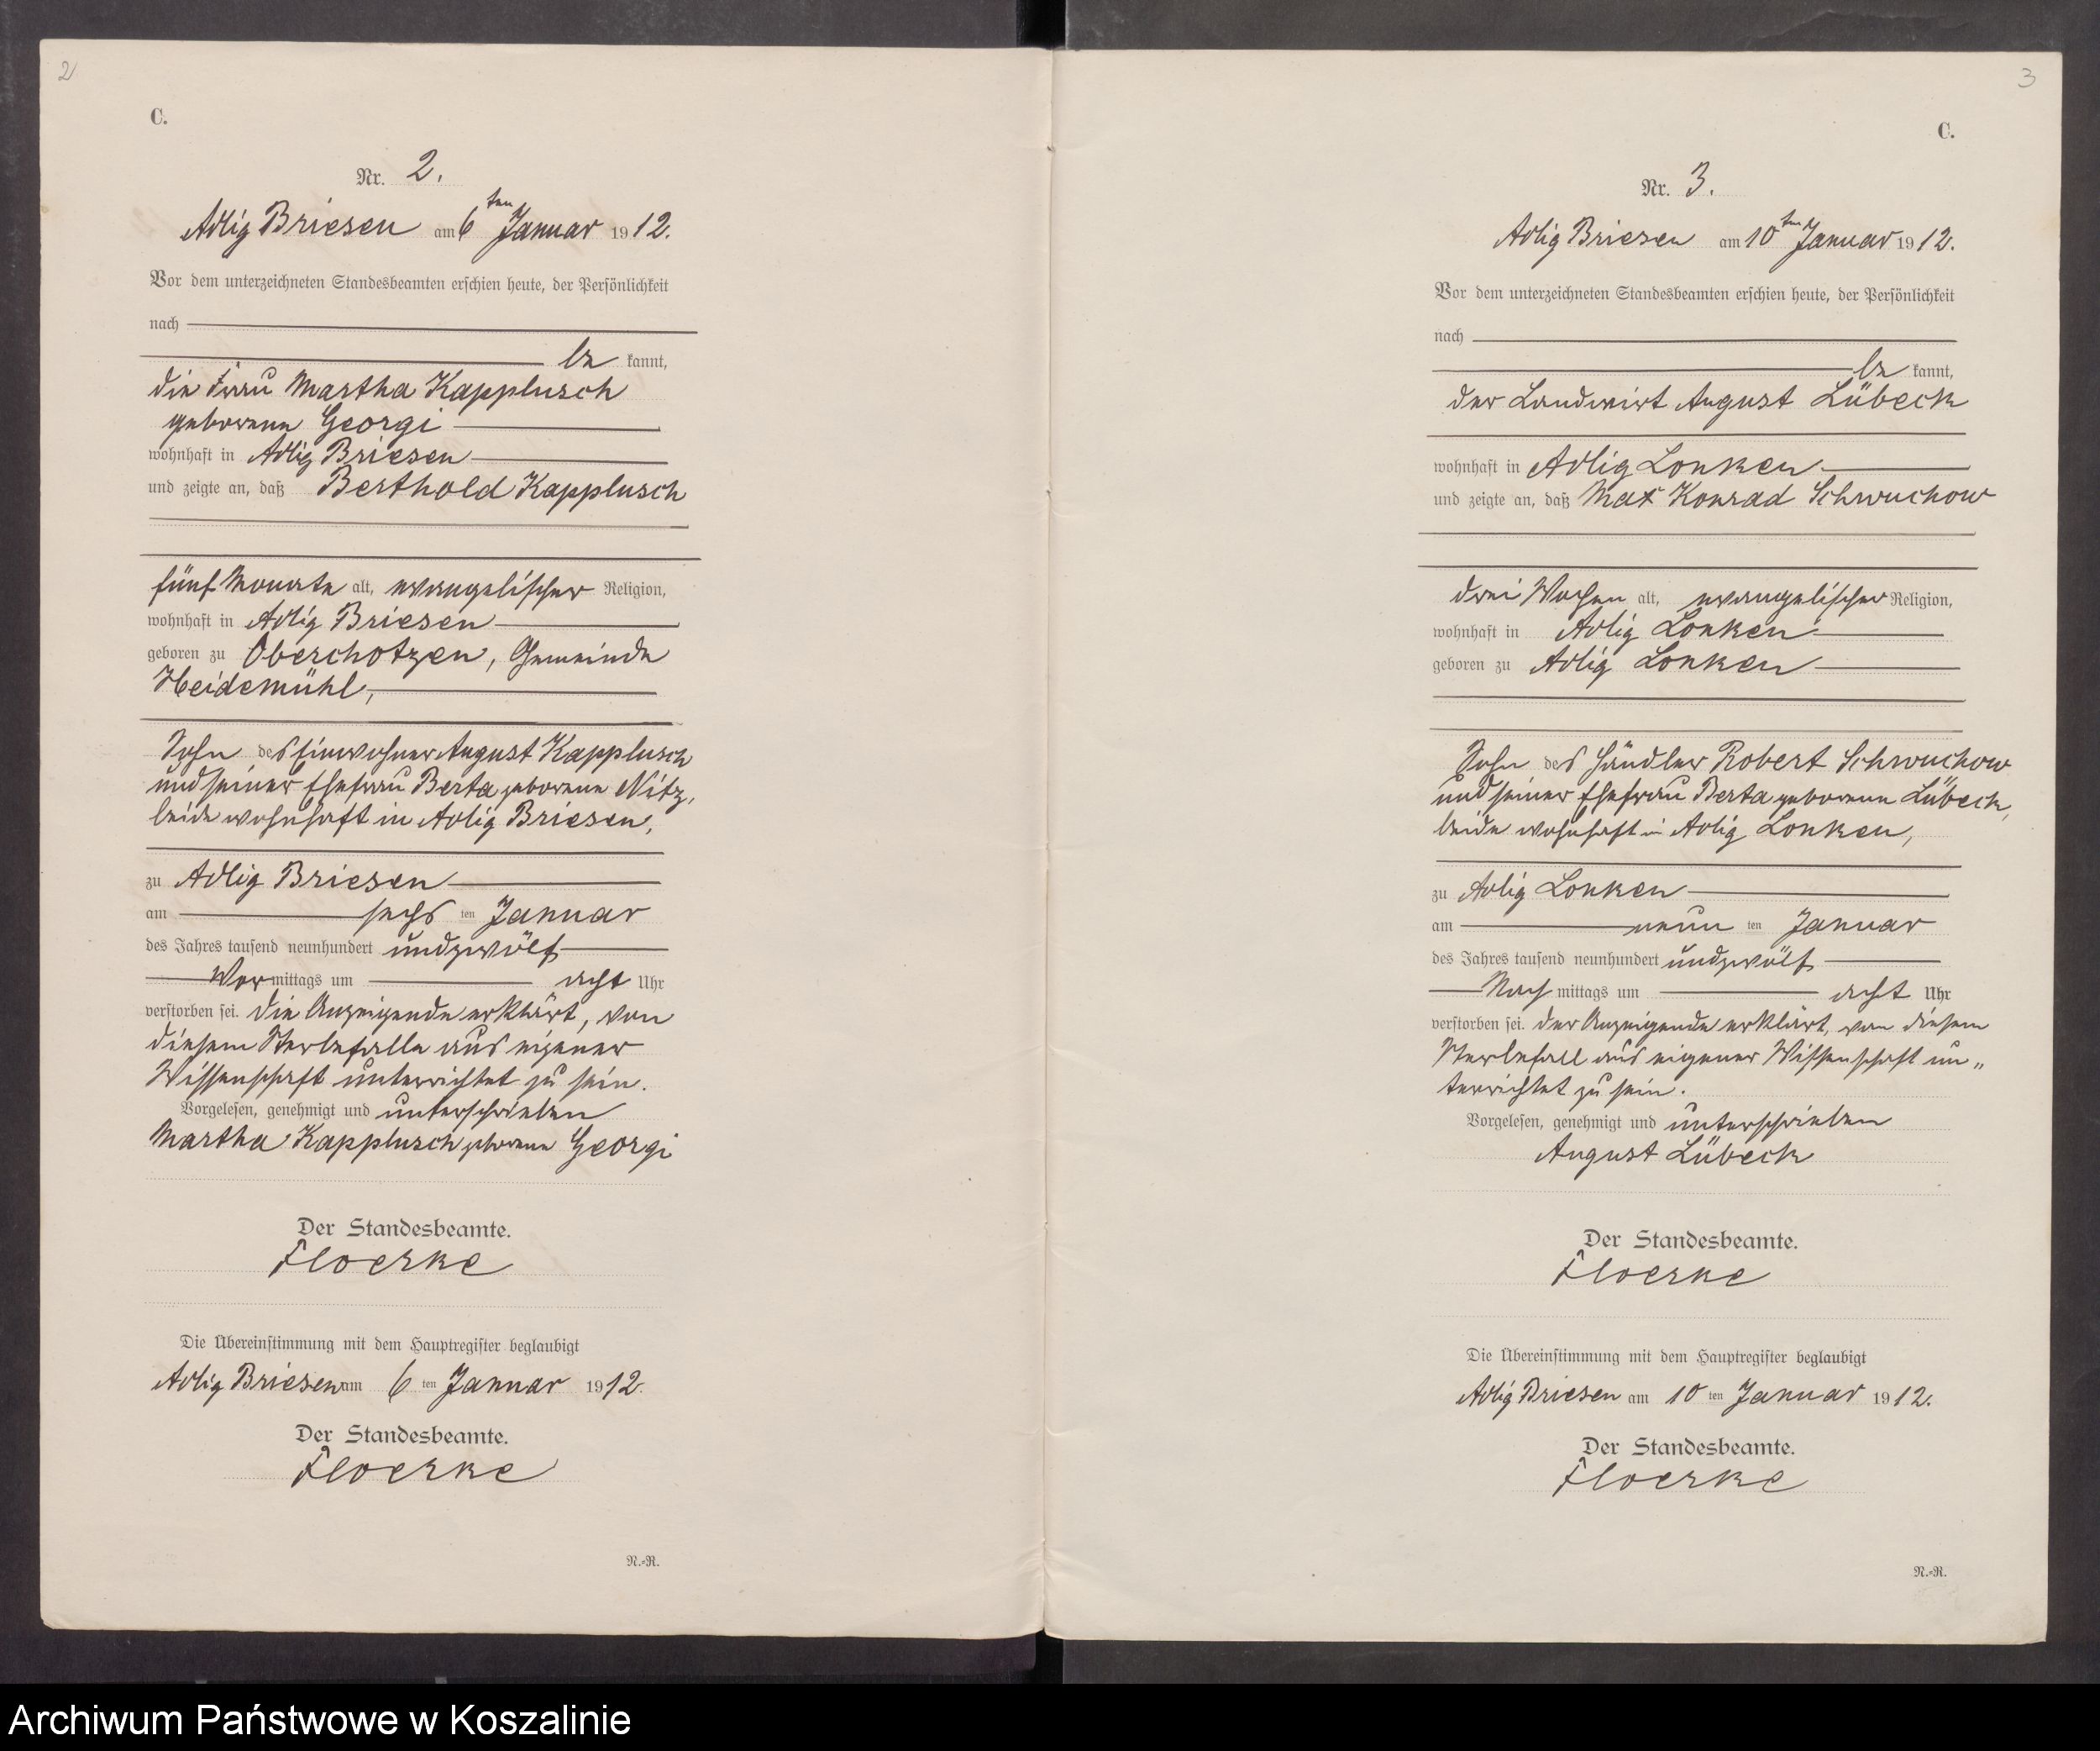 2
C.
Nr. 2.
Adlig Briesen am 6ten Januar 1912.
Vor dem unterzeichneten Standesbeamten erschien heute, der Persönlichkeit
nach
be kannt,
die Frau Martha Kapplusch
geborene Georgi
wohnhaft in Adlig Briesen
und zeigte an, daß Berthold Kapplusch
fünf Monate alt, evangelischer Religion,
wohnhaft in Adlig Briesen
geboren zu Oberchotzen, Gemeinde
Heidemühl,
Sohn des Einwohner August Kapplusch
und seiner Ehefrau Berta geborene Nitz,
beide wohnhaft in Adlig Briesen,
zu Adlig Briesen
am sechs ten Januar
des Jahres tausend neunhundert undzwölf
Vor mittags um acht Uhr
verstorben sei. Die Anzeigende erklärt, von
diesem Sterbefalle aus eigener
Wissenschaft unterrichtet zu sein.
Vorgelesen, genehmigt und unterschrieben
Martha Kapplusch geborene Georgi
Der Standesbeamte.
Floerke
Die Übereinstimmung mit dem Hauptregister beglaubigt
Adlig Briesen am 6 ten Januar 1912.
Der Standesbeamte.
Floerke
N.-R.
3
C.
Nr. 3.
Adlig Briesen am 10ten Januar 1912.
Vor dem unterzeichneten Standesbeamten erschien heute, der Persönlichkeit
nach
be kannt,
der Landwirt August Lübeck
wohnhaft in Adlig Lonken
und zeigte an, daß Max Konrad Schwuchow
drei Wochen alt, evangelischer Religion,
wohnhaft in Adlig Lonken
geboren zu Adlig Lonken
Sohn des Händler Robert Schwuchow
und seiner Ehefrau Berta geborene Lübeck,
beide wohnhaft in Adlig Lonken,
zu Adlig Lonken
am neun ten Januar
des Jahres tausend neunhundert undzwölf
Nach mittags um acht Uhr
verstorben sei. Der Anzeigende erklärt, von diesem
Sterbefall aus eigener Wissenschaft un„
terrichtet zu sein.
Vorgelesen, genehmigt und unterschrieben
August Lübeck
Der Standesbeamte.
Floerke
Die Übereinstimmung mit dem Hauptregister beglaubigt
Adlig Briesen am 10 ten Januar 1912.
Der Standesbeamte.
Floerke
N.-R.
Archiwum Państwowe w Koszalinie